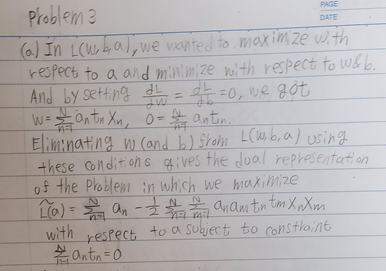 PAGE
DATE
Problem 3
(a) In L(w,b,a), we wanted to maximize with
respect to a and minimize with respect to w&b.
And by setting dL/dw = dL/db = 0, we got
w = Σ_{n=1}^{N} a_n t_n x_n, 0 = Σ_{n=1}^{N} a_n t_n.
Eliminating w (and b) from L(w,b,a) using
these conditions gives the dual representation
of the Problem in which we maximize
L̃(a) = Σ_{n=1}^{N} a_n - 1/2 Σ_{n=1}^{N} Σ_{m=1}^{N} a_n a_m t_n t_m x_n x_m
with respect to a subject to constraint
Σ_{n=1}^{N} a_n t_n = 0